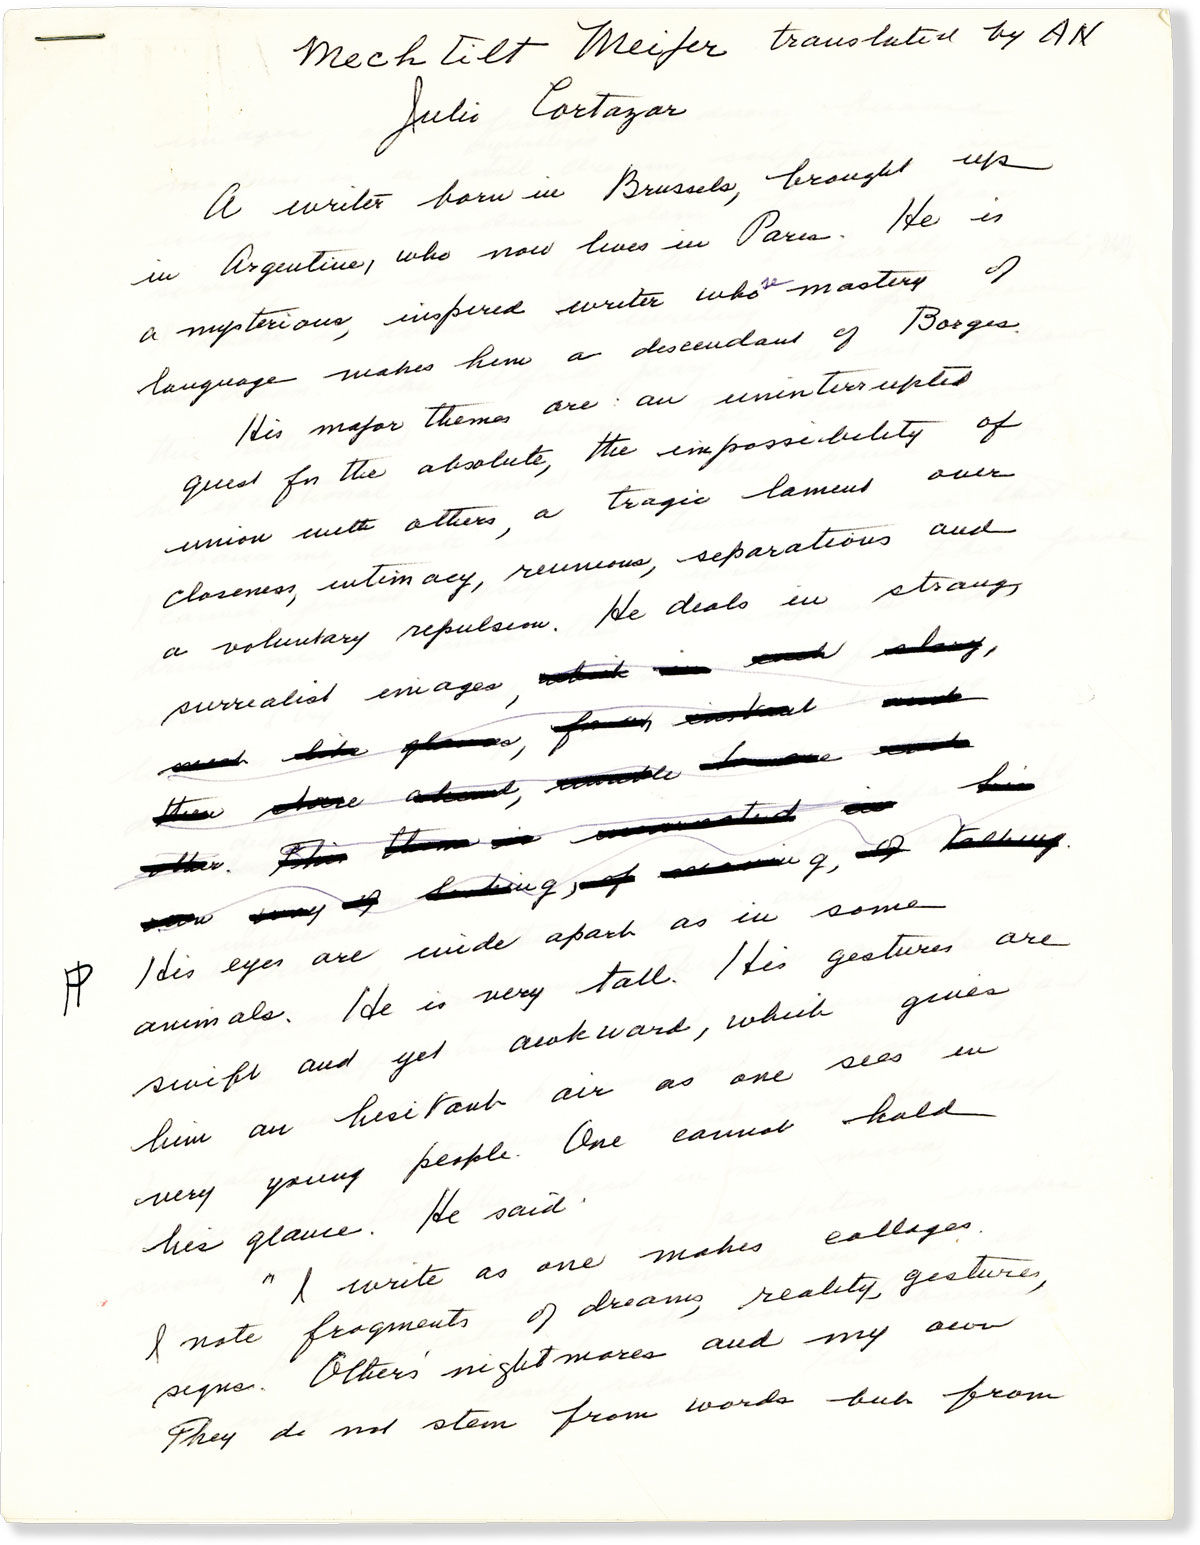 Mechtilt Meijer translated by AN
Julio Cortazar
A writer born in Brussels, brought up
in Argentine, who now lives in Paris. He is
a mysterious, inspired writer whose mastery of
language makes him a descendant of Borges.
His major themes are: an uninterrupted
quest for the absolute, the impossibility of
union with others, a tragic lament over
closeness, intimacy, reunions, separations and
a voluntary repulsion. He deals in strange,
surrealist images, which in each story,
meet like glances, for an instant and
then stare ahead, unable to see each
other. This theme is in his
own way of looking, of, of talking.
¶ His eyes are wide apart as in some
animals. He is very tall. His gestures are
swift and yet awkward, which gives
him an hesitant air as one sees in
very young people. One cannot hold
his glance. He said:
"I write as one makes collages.
I note fragments of dreams, reality, gestures,
signs. Others' nightmares and my own
They do not stem from words but from